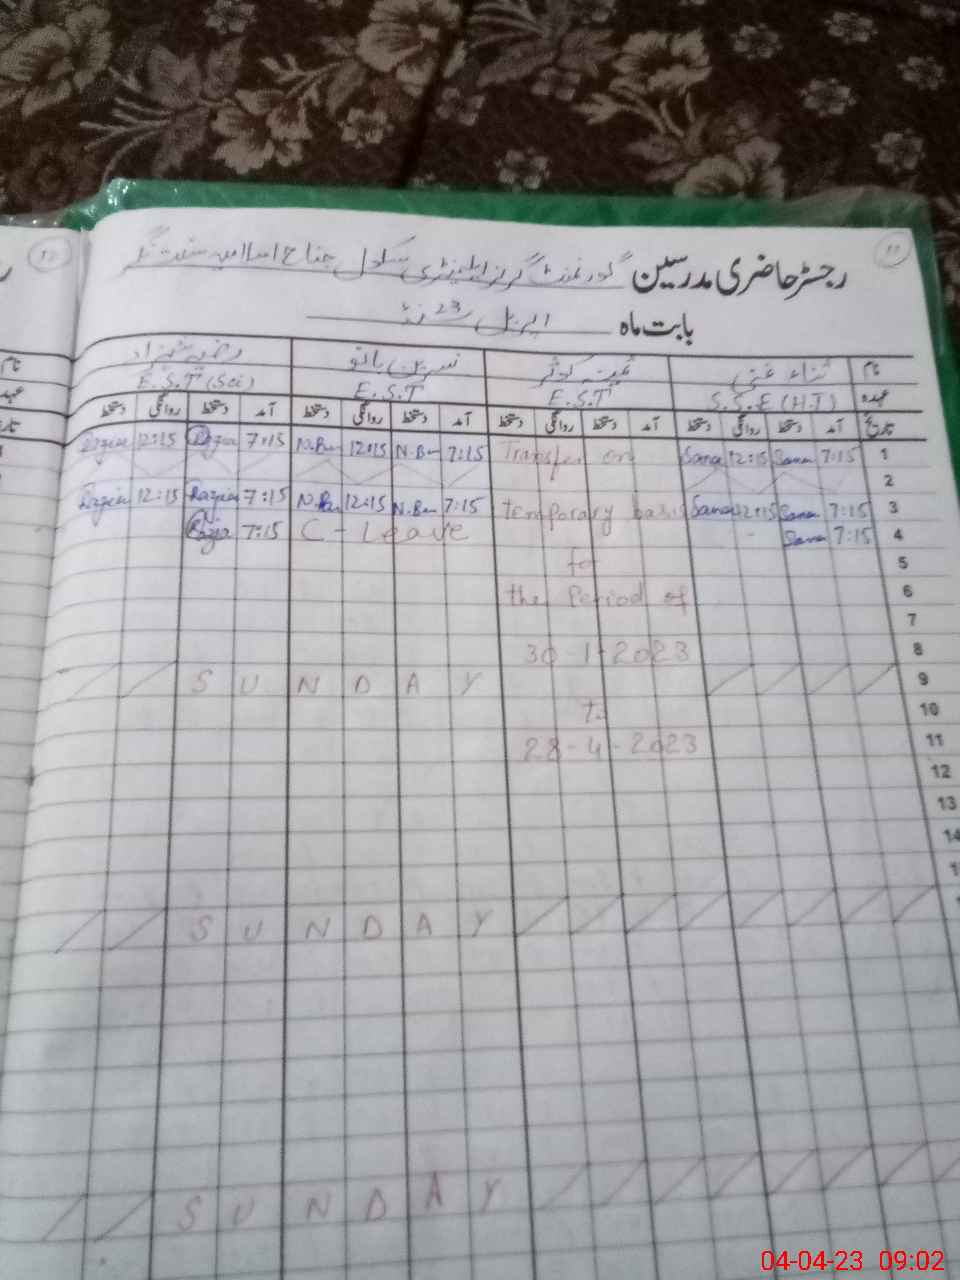 رجسٹر حاضری مدرسین گورنمنٹ گرلز ایلیمنٹری سکول جناح اسلامیہ
بابت ماہ اپریل 23ء
نام ثناء غنی کوثر نسرین بانو رضیہ شہزاد
عہدہ S.S.E (H.T) E.S.T E.S.T E.S.T (Sci)
تاریخ آمد دستخط روانگی دستخط آمد دستخط روانگی دستخط آمد دستخط روانگی دستخط آمد دستخط روانگی دستخط
Razia 12:15 Razia 7:15 N.Bn 12:15 N.Bn 7:15 Transfer on Sana 12:15 Sana 7:15 1
2
Razia 12:15 Razia 7:15 N.Bn 12:15 N.Bn 7:15 temporary basis Sana 12:15 Sana 7:15 3
Razia 7:15 C - Leave Sana 7:15 4
for 5
the Period of 6
7
30-1-2023 8
SUNDAY 9
to 10
28-4-2023 11
12
13
14
SUNDAY
SUNDAY
04-04-23 09:02